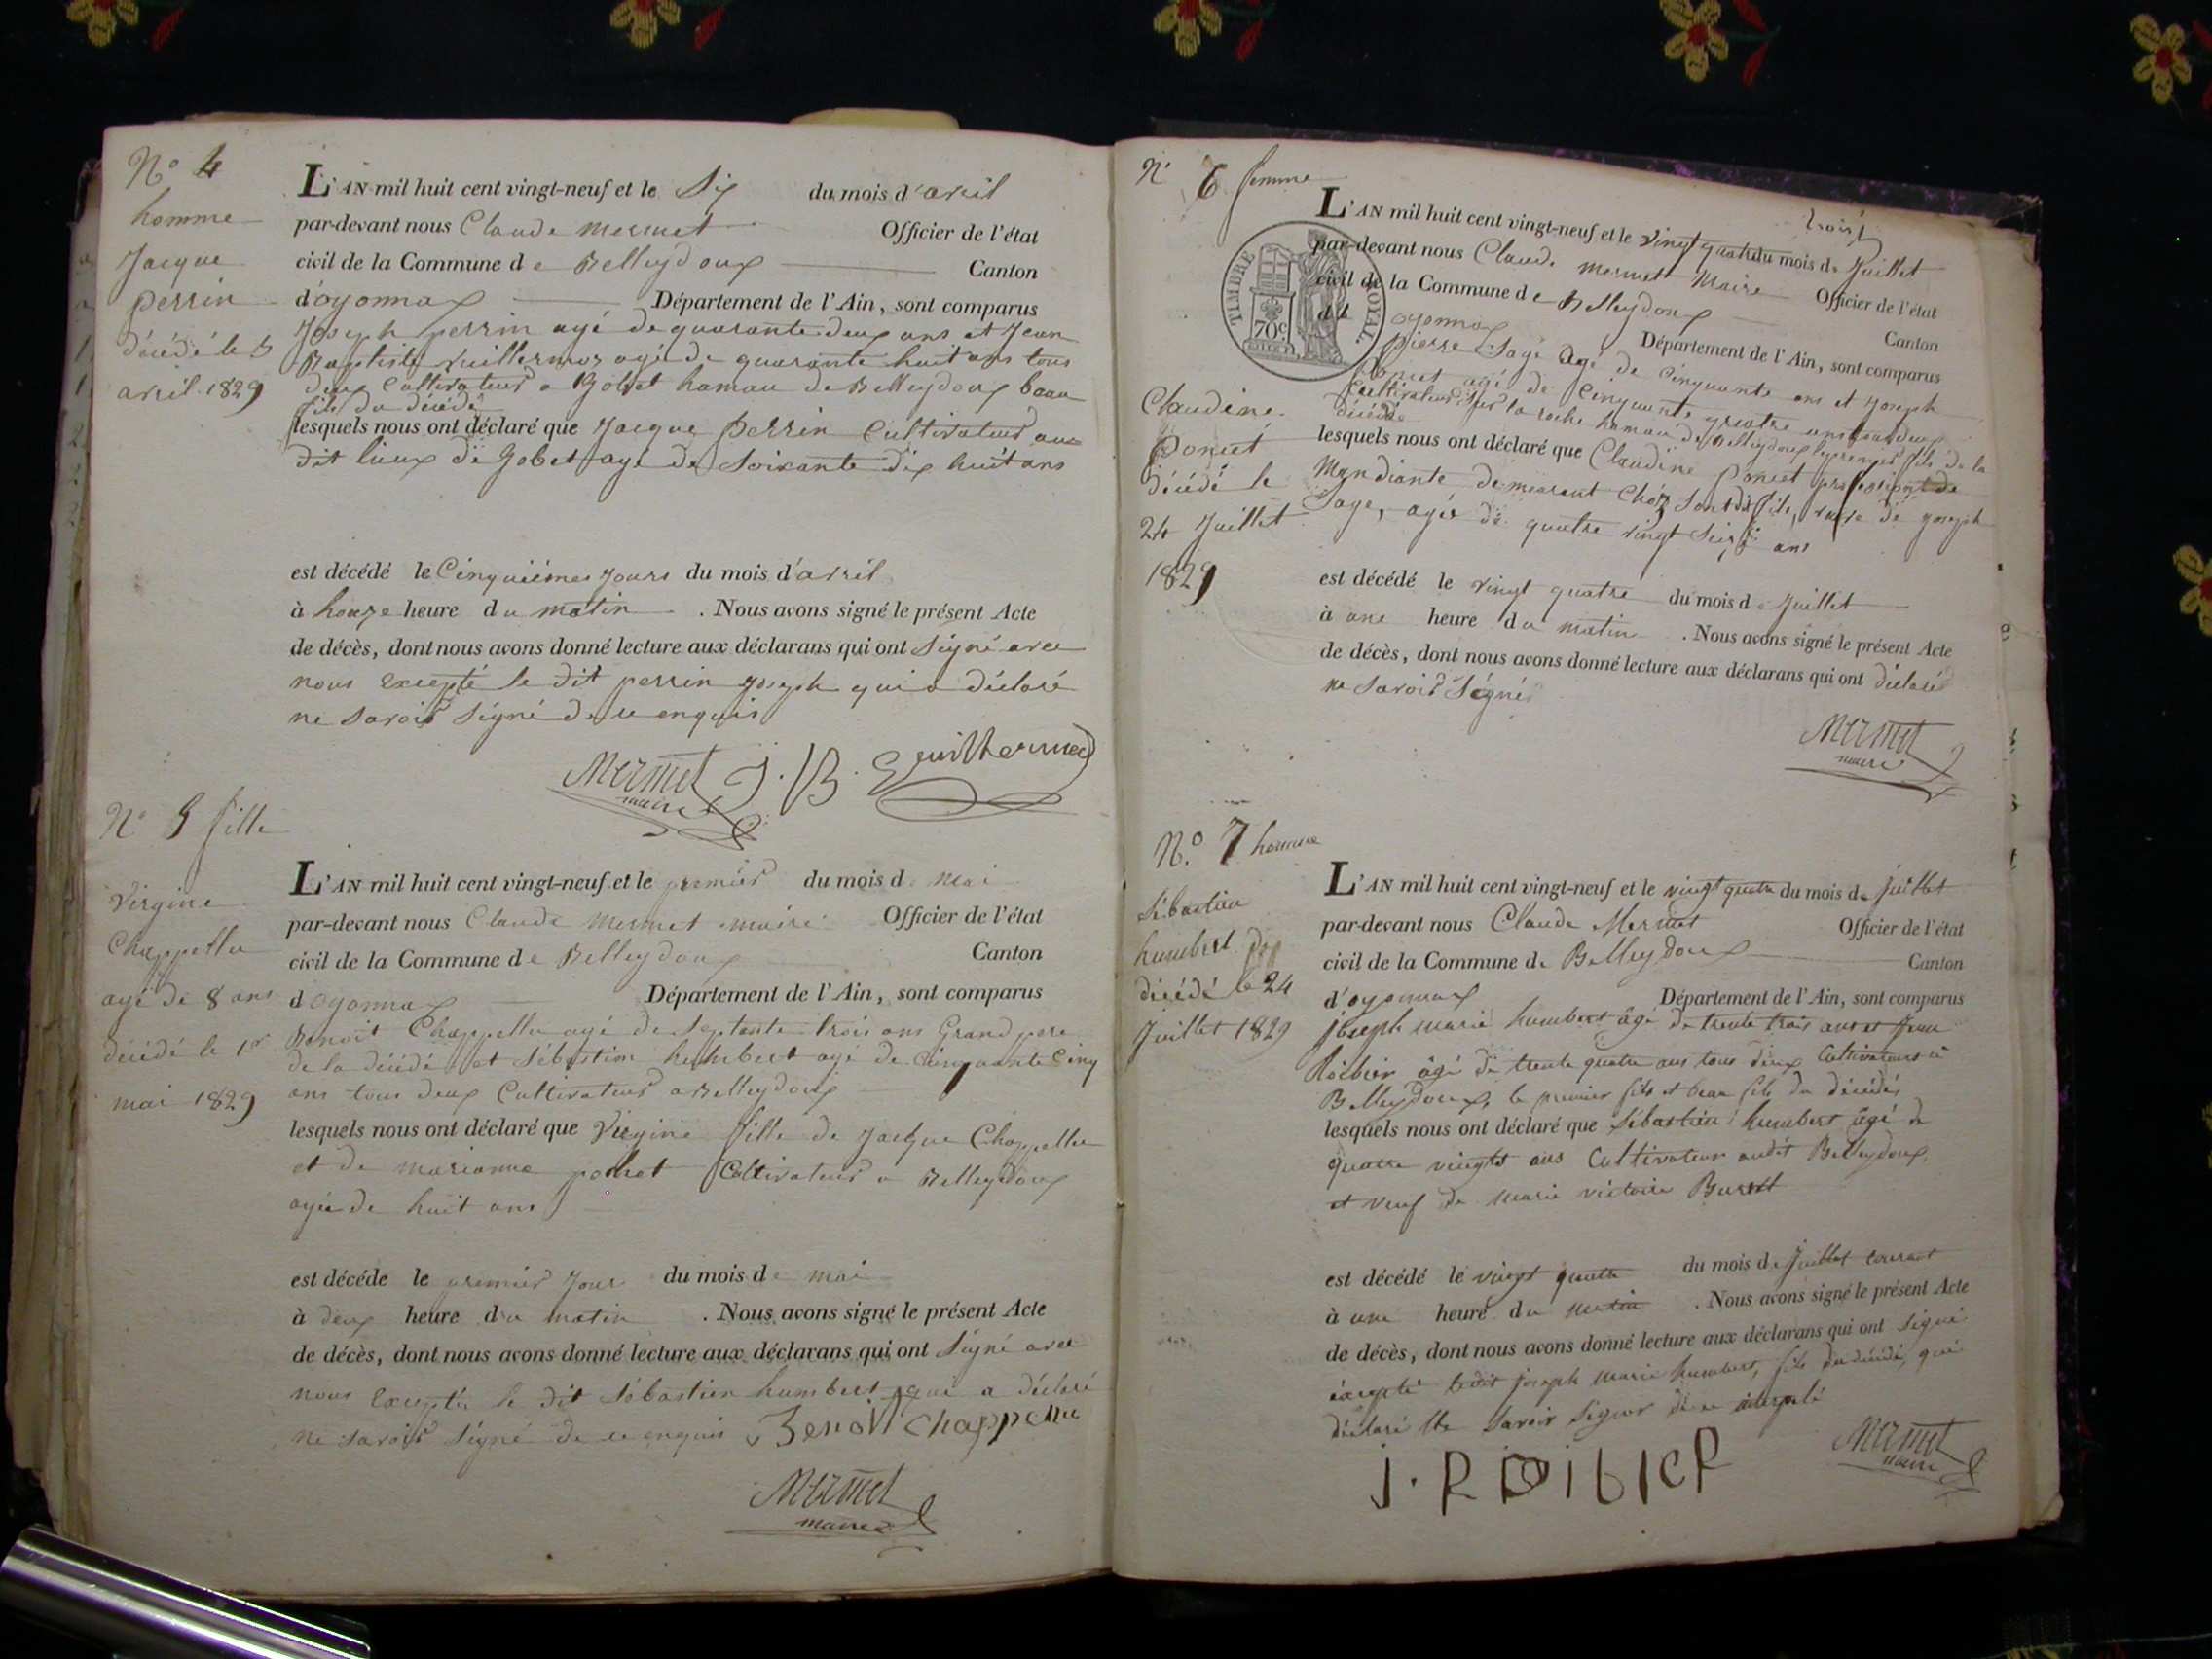 N.o 4
homme
Jacque
perrin
décédé le 5
avril 1829
L'AN mil huit cent vingt-neuf et le Six du mois d'avril
par-devant nous Claude mermet Officier de l'état
civil de la Commune de Belleydoux Canton
d'oyonnax Département de l'Ain, sont comparus
Joseph perrin agé de quarante deux ans et Jean
Baptiste vuillermoz agé de quarante huit ans tous
deux Cultivateurs a Gobet hamau de Belleydoux beau
fils du décédé
lesquels nous ont déclaré que Jacque perrin Cultivateur au
dit lieux de Gobet agé de Soixante dix huit ans
est décédé le Cinquiémes Jours du mois d'avril
à honze heure du matin . Nous avons signé le présent Acte
de décès, dont nous avons donné lecture aux déclarans qui ont Signé avec
nous excepté le dit perrin yoseph qui a déclaré
ne savoir Signé de ce enquis
Mermet J. B. Guilhermed
maire
N.o 5 fille
Virgine
Chappellu
agé de 8 ans
décédé le 1er
mai 1829
L'AN mil huit cent vingt-neuf et le premier du mois de mai
par-devant nous Claude mermet maire Officier de l'état
civil de la Commune de Belleydoux Canton
d oyonnax Département de l'Ain, sont comparus
Benoit Chappellu agé de Septente trois ans Grand pere
de la décédé et Sébastien humbert agé de cinquante Cinq
ans tous deux Cultivateur a Belleydoux
lesquels nous ont déclaré que Virgine fille de Jacque Chappellu
et de marianne poncet Cultivateur a Belleydoux
agée de huit ans
est décéde le premier Jour du mois de mai
à deux heure du matin . Nous avons signé le présent Acte
de décès, dont nous avons donné lecture aux déclarans qui ont Signé avec
nous Excepté le dit Sébastien humbert qui a déclaré
ne savoir Signé de ce enquis Benoit Chappellu
Mermet
maire
N.o 6 femme
Claudine
Poncet
décédé le
24 Juillet
1829
TIMBRE ROYAL
70c
trois
L'AN mil huit cent vingt-neuf et le vingt quatre du mois de Juillet
par-devant nous Claude mermet Maire Officier de l'état
civil de la Commune de Belleydoux Canton
d oyonnax Département de l'Ain, sont comparus
pierre Sage agé de Cinquante ans et yoseph
Poncet agé de Cinquante quatre ans tous deux
Cultivateur sur la roche hamau de Belleydoux le premier fils de la
décédé
lesquels nous ont déclaré que Claudine Poncet
Mandiante demeurant Chéz Sont dit fils, veuve de yoseph
Sage, agée de quatre vingt Seize ans
est décédé le vingt quatre du mois de Juillet
à une heure du matin . Nous avons signé le présent Acte
de décès, dont nous avons donné lecture aux déclarans qui ont déclaré
ne Savoir Signé
Mermet
maire
N.o 7 homme
Sébastien
humbert
décédé le 24
Juillet 1829
L'AN mil huit cent vingt-neuf et le vingt quatre du mois de Juillet
par-devant nous Claude Mermet Officier de l'état
civil de la Commune de Belleydoux Canton
d'oyonnax Département de l'Ain, sont comparus
joseph marie humbert âgé de trente trois ans et Jean
Roibier âgé de trente quatre ans tous deux Cultivateurs à
Belleydoux, le premier fils et beau fils du décédé,
lesquels nous ont déclaré que Sébastien humbert âgé de
quatre vingts ans Cultivateur audit Belleydoux,
et veuf de marie victoire
est décédé le vingt quatre du mois de Juillet courant
à une heure du matin . Nous avons signé le présent Acte
de décès, dont nous avons donné lecture aux déclarans qui ont signé
éxcepté ledit joseph marie humbert, fils du décédé, qui
déclaré Ne Savoir Signer de ce interpelé
J. ROIbIER
Mermet
maire